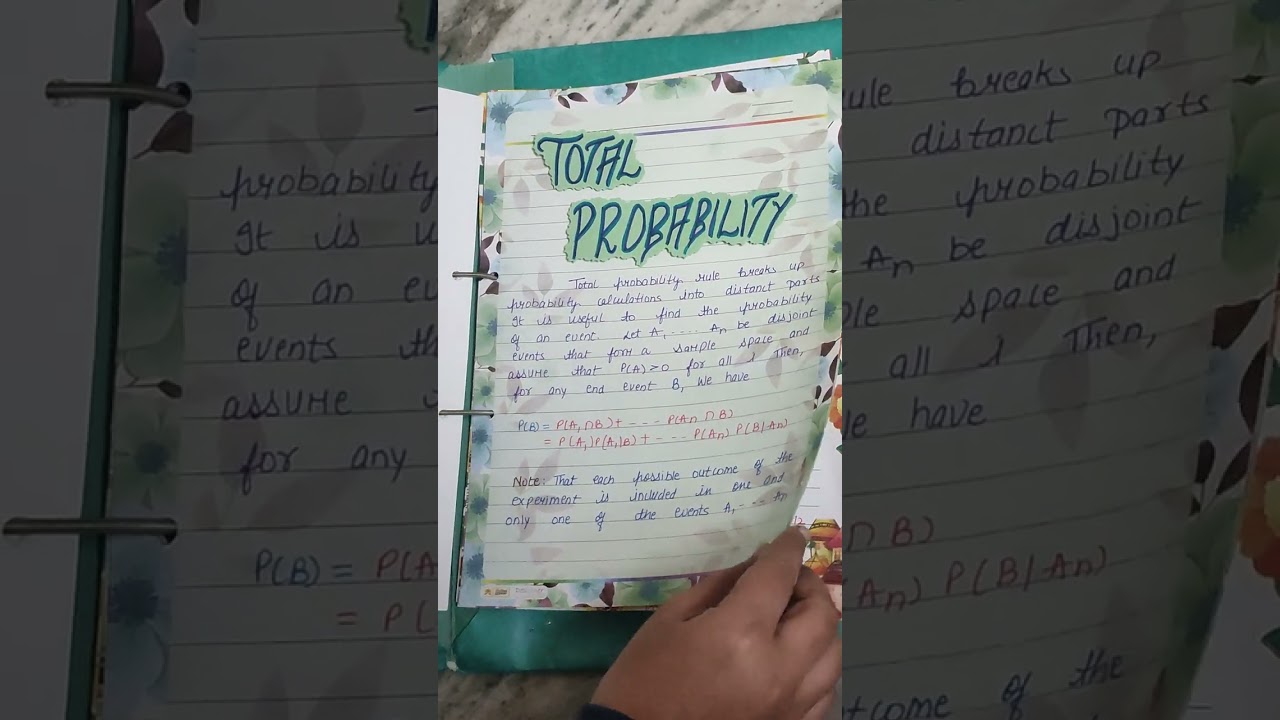 TOTAL
PROBABILITY
Total probability rule breaks up
probability calculations into distanct parts
It is useful to find the probability
of an event. Let A, ---- An be disjoint
events that form a sample space and
assume that P(A) >0 for all i Then,
for any end event B, We have
P(B) = P(A, ∩ B) + --- P(An ∩ B)
= P(A,) P(A,|B) + --- P(An) P(B|An)
Note: That each possible outcome of the
experiment is included in one and
only one of the events A, --- An